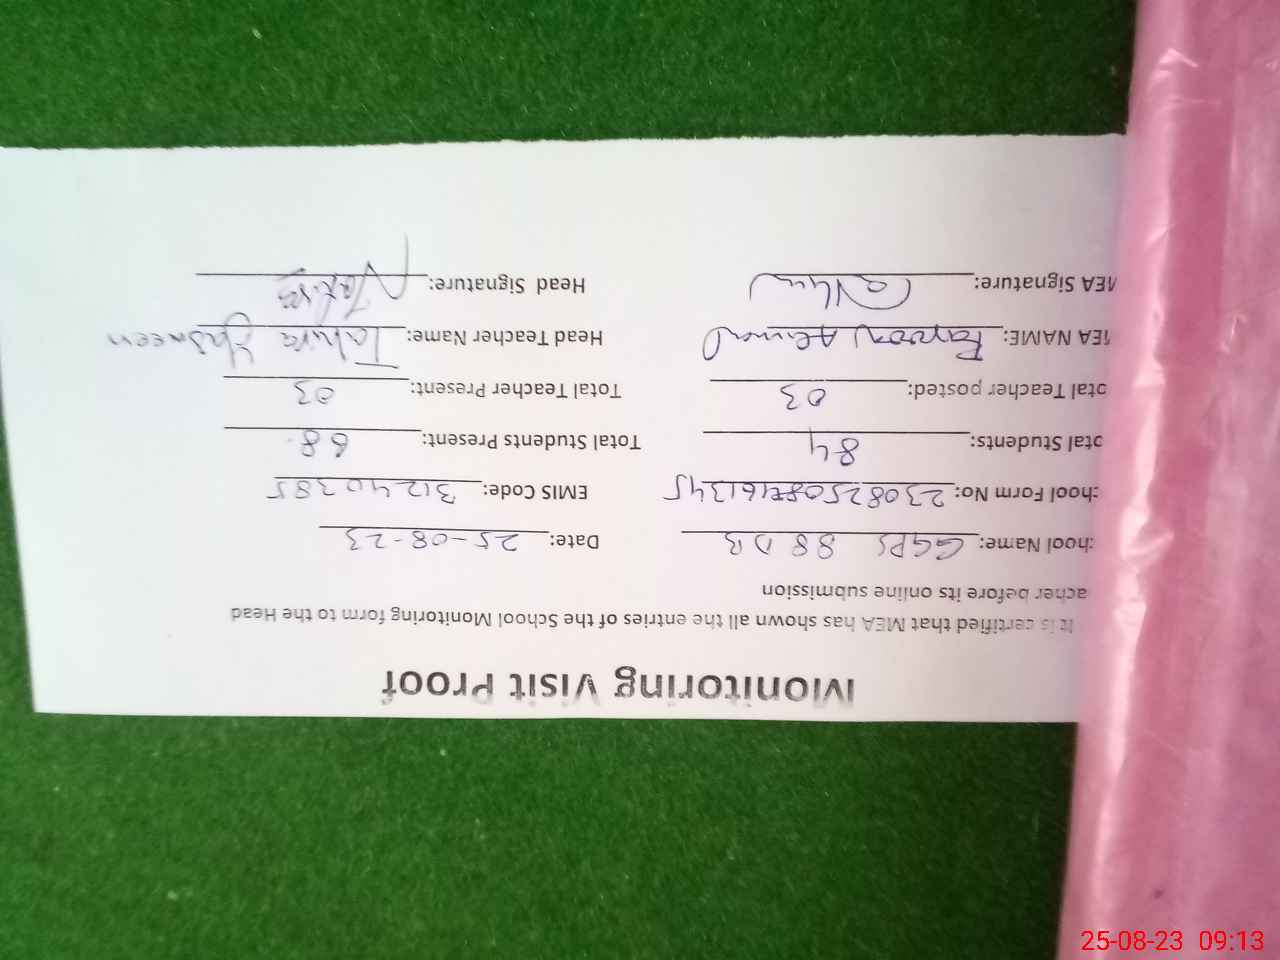 Monitoring Visit Proof
It is certified that MEA has shown all the entries of the School Monitoring form to the Head
acher before its online submission
chool Name: GGPS 88 DB Date: 25-08-23
chool Form No: EMIS Code: 31240385
otal Students: 84 Total Students Present: 68
otal Teacher posted: 03 Total Teacher Present: 03
MEA NAME: Ahmad Head Teacher Name: Tahira Yasmeen
MEA Signature: Head Signature: Tahira
25-08-23 09:13